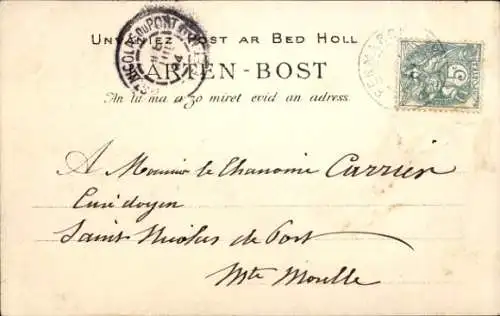 Unvaniez Post ar Bed Holl
KARTEN-BOST
An tu ma a zo miret evid an adress.
ST NICOLAS-DU-PORT
PENMARCH
5
A Monsieur le Chanoine Carrier
Curé doyen
Saint Nicolas de Port
Mthe Moselle